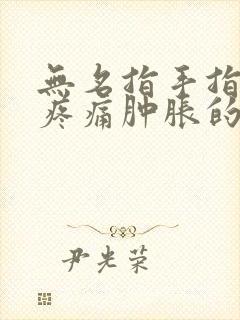 無名指手指
疼痛肿脹的
尹光荣